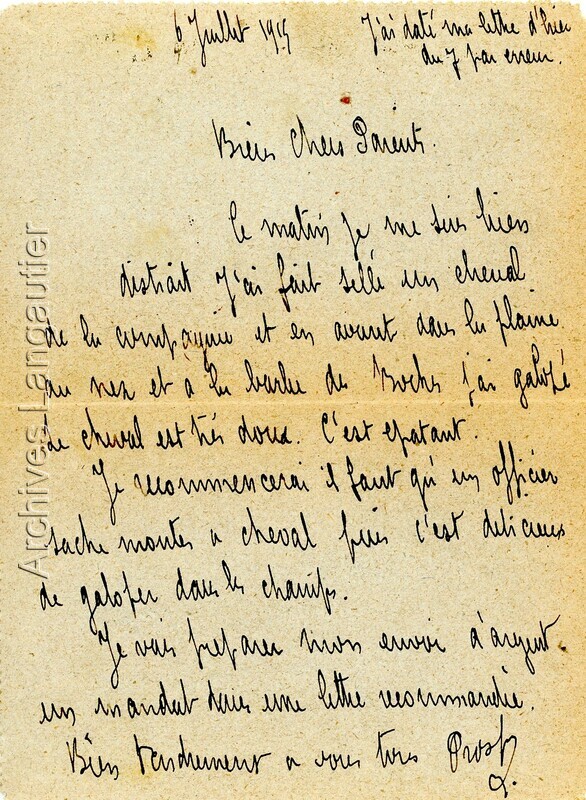 6 Juillet 1915
J'ai daté ma lettre d'hier
du 7 par erreur.
Biens Chers Parents.
Ce matin je me suis bien
distrait J'ai fait sellé un cheval
de la compagnie et en avant dans la plaine
au nez et a la barbe des Boches j'ai galopé
Le cheval est très doux. C'est epatant.
Je recommencerai il faut qu'un officier
sache monter a cheval puis c'est delicieux
de galoper dans les champs.
Je vais preparer mon envoi d'argent
un mandat dans une lettre recommandée.
Bien tendrement a vous tous Prosp
Archives Langautier